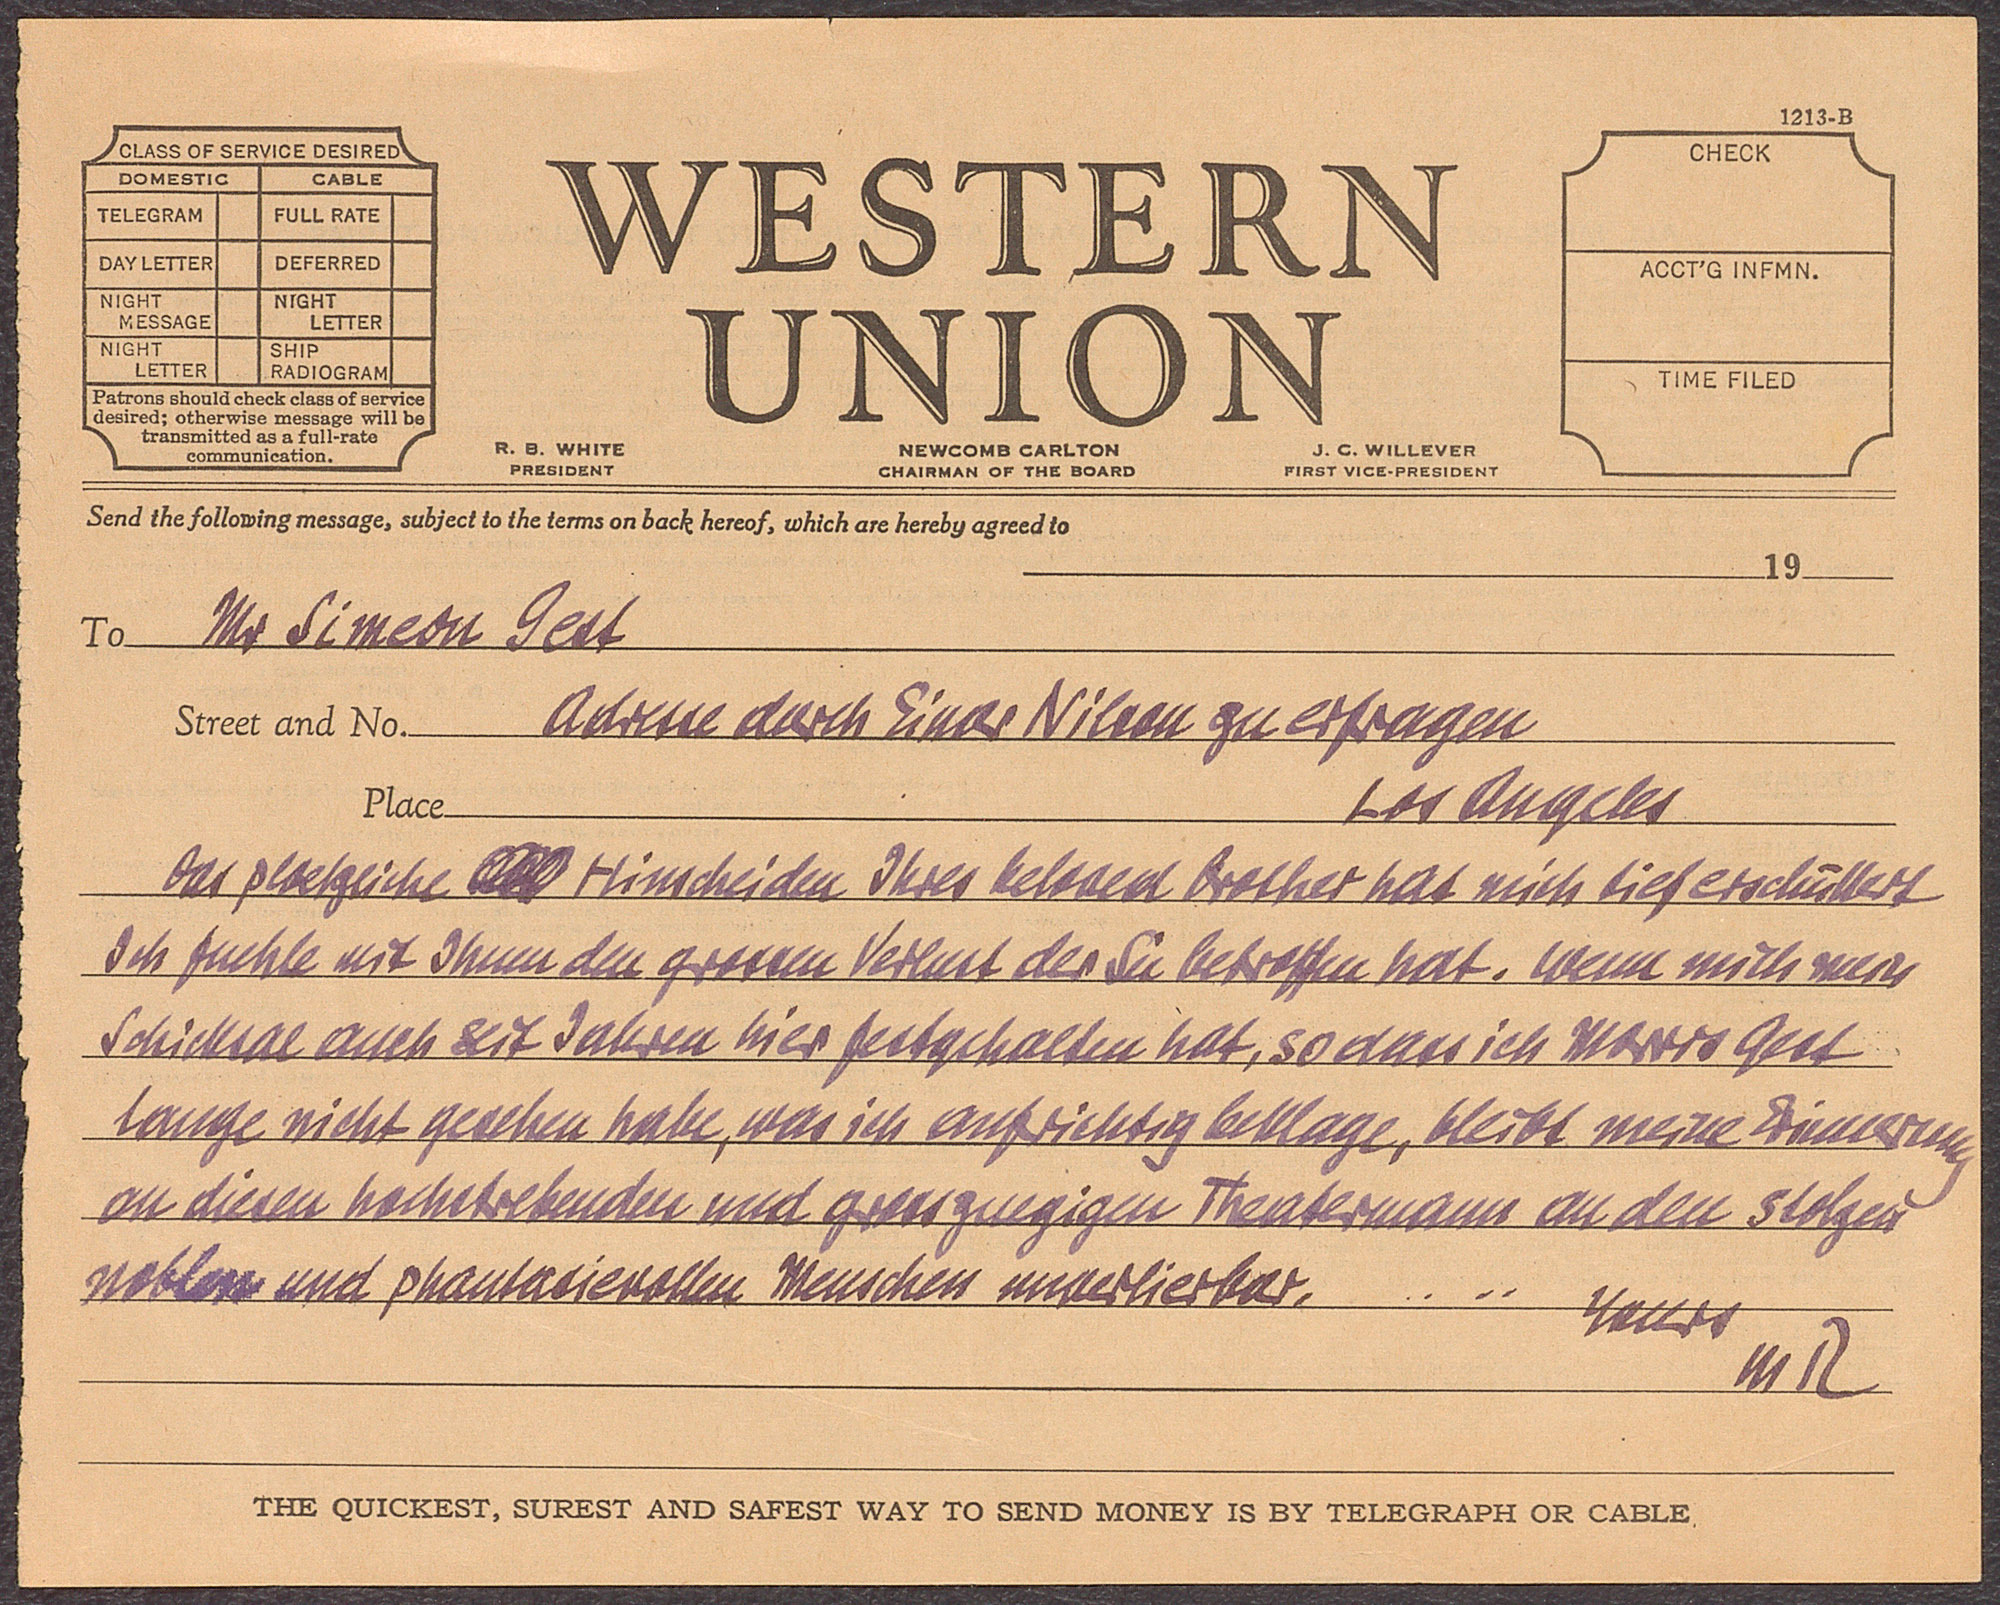 1213-B
CLASS OF SERVICE DESIRED
DOMESTIC CABLE
TELEGRAM FULL RATE
DAY LETTER DEFERRED
NIGHT MESSAGE NIGHT LETTER
NIGHT LETTER SHIP RADIOGRAM
Patrons should check class of service
desired; otherwise message will be
transmitted as a full-rate
communication.
WESTERN
UNION
R. B. WHITE
PRESIDENT
NEWCOMB CARLTON
CHAIRMAN OF THE BOARD
J. C. WILLEVER
FIRST VICE-PRESIDENT
CHECK
ACCT'G INFMN.
TIME FILED
Send the following message, subject to the terms on back hereof, which are hereby agreed to
19
To Mr Simeon Gest
Street and No. Adresse durch Einar Nilson zu erfragen
Place Los Angeles
Das ploetzliche Hinscheiden Ihres beloved Brother hat mich tief erschüttert
Ich fuehle mit Ihnen den grossen Verlust der Sie betroffen hat. Wenn mich mein
Schicksal auch seit Jahren hier festgehalten hat, so dass ich Morris Gest
lange nicht gesehen habe, was ich aufrichtig beklage, bleibt meine Erinnerung
an diesen hochstrebenden und grosszuegigen Theatermann an den stolzen
noblen und phantasievollen Menschen unverlierbar.
Yours
M R
THE QUICKEST, SUREST AND SAFEST WAY TO SEND MONEY IS BY TELEGRAPH OR CABLE